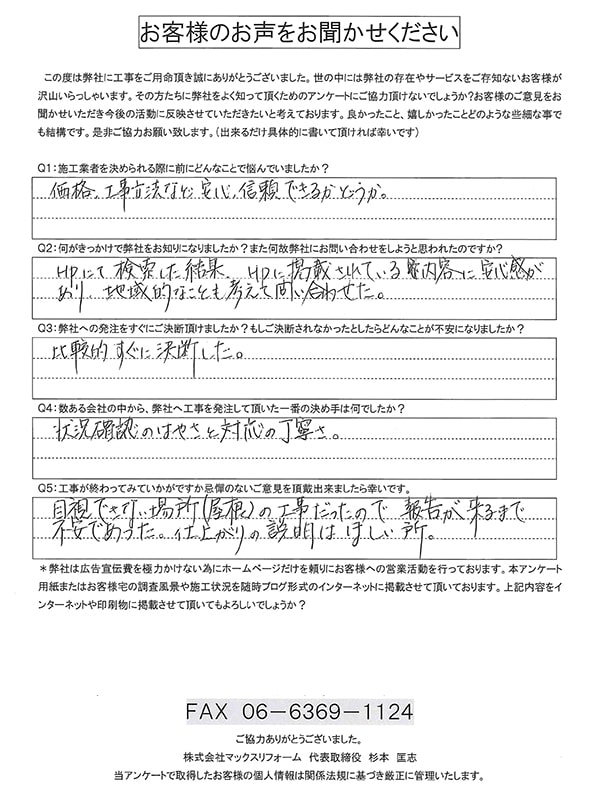 お客様のお声をお聞かせください
この度は弊社に工事をご用命頂き誠にありがとうございました。世の中には弊社の存在やサービスをご存知ないお客様が
沢山いらっしゃいます。その方たちに弊社をよく知って頂くためのアンケートにご協力頂けないでしょうか？お客様のご意見をお
聞かせいただき今後の活動に反映させていただきたいと考えております。良かったこと、嬉しかったことどのような些細な事で
も結構です。是非ご協力お願い致します。（出来るだけ具体的に書いて頂ければ幸いです）
Q1：施工業者を決められる際に前にどんなことで悩んでいましたか？
価格、工事方法など安心、信頼できるかどうか。
Q2：何がきっかけで弊社をお知りになりましたか？また何故弊社にお問い合わせをしようと思われたのですか？
HPにて検索した結果、HPに掲載されている内容に安心感が
あり、地域的なことも考えて問い合わせた。
Q3：弊社への発注をすぐにご決断頂けましたか？もしご決断されなかったとしたらどんなことが不安になりましたか？
比較的すぐに決断した。
Q4：数ある会社の中から、弊社へ工事を発注して頂いた一番の決め手は何でしたか？
状況確認のはやさと対応の丁寧さ。
Q5：工事が終わってみていかがですか忌憚のないご意見を頂戴出来ましたら幸いです。
目視できない場所（屋根）の工事だったので報告が来るまで
不安であった。仕上がりの説明はほしい所。
＊弊社は広告宣伝費を極力かけない為にホームページだけを頼りにお客様への営業活動を行っております。本アンケート
用紙またはお客様宅の調査風景や施工状況を随時ブログ形式のインターネットに掲載させて頂いております。上記内容をイ
ンターネットや印刷物に掲載させて頂いてもよろしいでしょうか？
FAX 06－6369－1124
ご協力ありがとうございました。
株式会社マックスリフォーム 代表取締役 杉本 匡志
当アンケートで取得したお客様の個人情報は関係法規に基づき厳正に管理いたします。